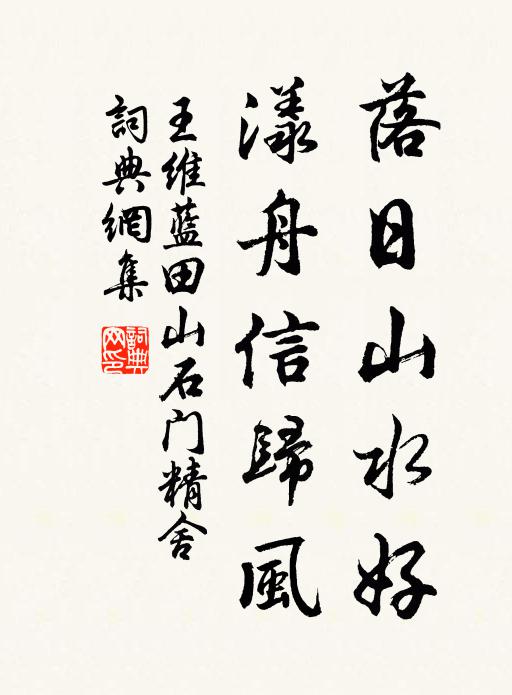 落日山水好
漾舟信歸風
王維藍田山石门精舍
詞典網集
詞典网印